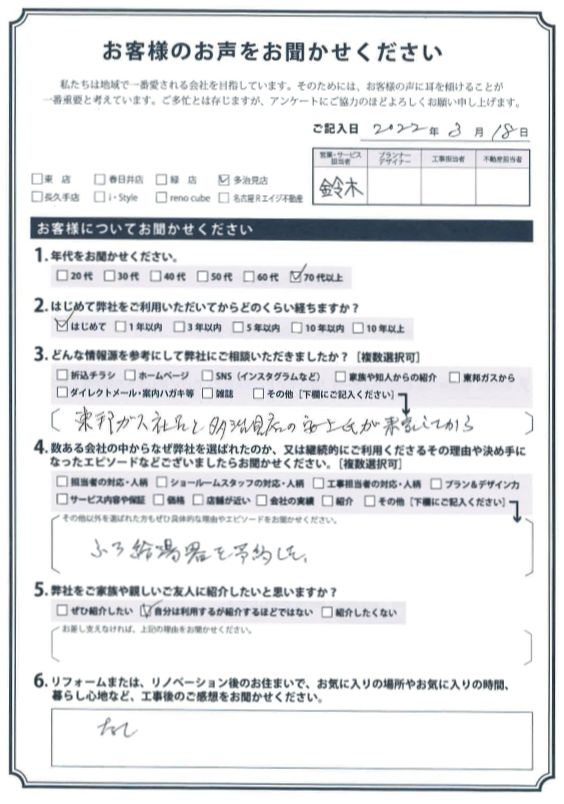 お客様のお声をお聞かせください
私たちは地域で一番愛される会社を目指しています。そのためには、お客様の声に耳を傾けることが
一番重要と考えています。ご多忙とは存じますが、アンケートにご協力のほどよろしくお願い申し上げます。
ご記入日 2022年 3月 18日
営業・サービス担当者 プランナーデザイナー 工事担当者 不動産担当者
鈴木
□東 店 □春日井店 □緑 店 ☑多治見店
□長久手店 □i・Style □reno cube □名古屋Rエイジ不動産
お客様についてお聞かせください
1. 年代をお聞かせください。
□20代 □30代 □40代 □50代 □60代 ☑70代以上
2. はじめて弊社をご利用いただいてからどのくらい経ちますか?
☑はじめて □1年以内 □3年以内 □5年以内 □10年以内 □10年以上
3. どんな情報源を参考にして弊社にご相談いただきましたか?[複数選択可]
□折込チラシ □ホームページ □SNS(インスタグラムなど) □家族や知人からの紹介 □東邦ガスから
□ダイレクトメール・案内ハガキ等 □雑誌 □その他[下欄にご記入ください]
東邦ガス社員と多治見店の
4. 数ある会社の中からなぜ弊社を選ばれたのか、又は継続的にご利用くださるその理由や決め手に
なったエピソードなどございましたらお聞かせください。[複数選択可]
□担当者の対応・人柄 □ショールームスタッフの対応・人柄 □工事担当者の対応・人柄 □プラン&デザイン力
□サービス内容や保証 □価格 □店舗が近い □会社の実績 □紹介 □その他[下欄にご記入ください]
その他以外を選ばれた方もぜひ具体的な理由やエピソードをお聞かせください。
ふろ給湯器を予約した。
5. 弊社をご家族や親しいご友人に紹介したいと思いますか?
□ぜひ紹介したい ☑自分は利用するが紹介するほどではない □紹介したくない
お差し支えなければ、上記の理由をお聞かせください。
6. リフォームまたは、リノベーション後のお住まいで、お気に入りの場所やお気に入りの時間、
暮らし心地など、工事後のご感想をお聞かせください。
なし